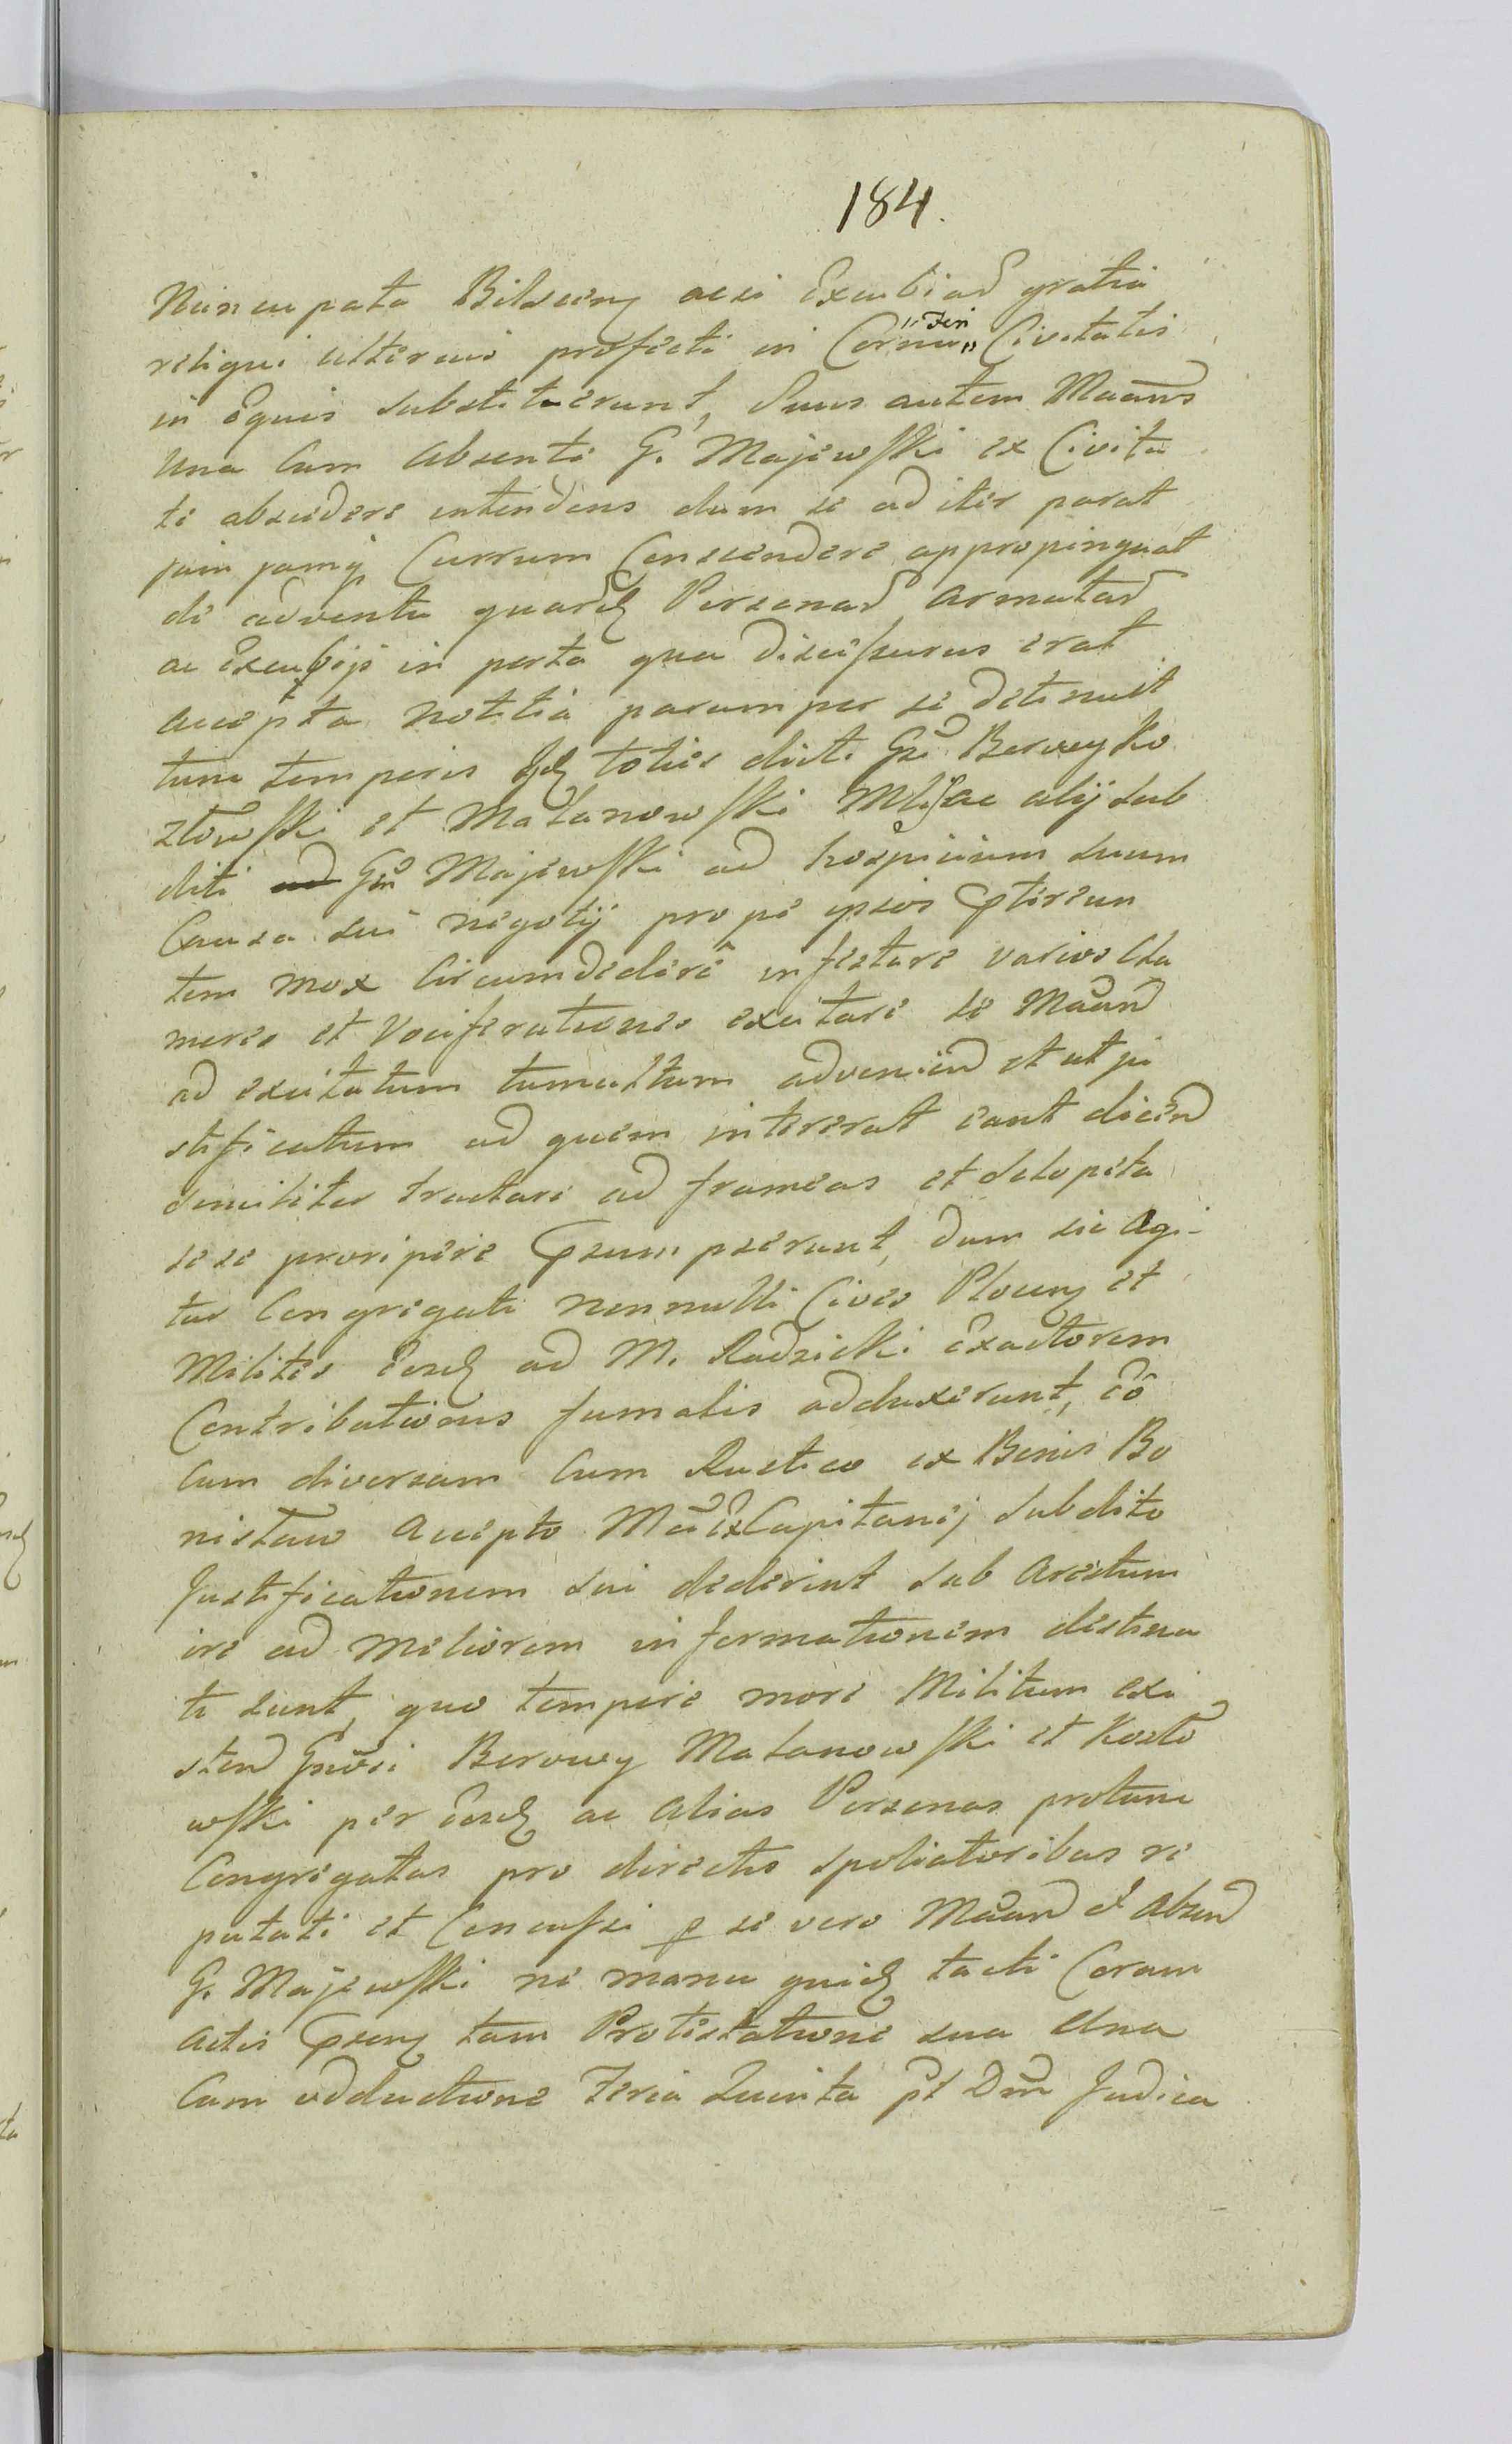 184.
Nuncupata Bilscing acsi Excubiad gratia
reliqui ulterius profecti in Cornu „Fori„ Civitatis
in Equis substiterunt, Suus autem Maāns
una Cum absenti G. Majewski ex Civita
te abscedere intendens dum se ad iter parat
jam jamq Currum Conscendere appropinquat
de adventu quard Personad armatad
ac Excubijs in porta qua discessurus erat
accepta notitia parumper se detinuit
tunc temporis toties dicti Gsi Berwey Ko
złowski et Matanowski Mlis ac alij sub
diti Gm Majewski ad hospicium suum
Causa sui negotij prope ipsos ptereun
tem mox Circumdedere infestare varios Cla
mores et Vociferationes excitare se Maand
ad excitatum tumultum advenied et ut ju
stificatum ad quem intererat eant dicend
similiter tractari ad frameas et sclopeta
se se proripere psumpserunt, dum sic agi-
tur Congregati nonnulli Cives Ploceng et
Milites Eosd ad M. Radzicki Exactorem
Contributionis fumalis adduxerunt, eo
cum diversam Cum Rustico ex Bonis Bo
nislaw Accepto Mci ExCapitanej subdito
Justificationem sui dederint sub Arestum
ire ad Meliorem informationem destina
ti sunt, quo tempore more Militum exi
stend Gnosi Berowy Matanowski et Kozło
wski per Eosd ac Alias Personas protunc
Congregatas pro directis spoliatoribus re
putati et Concussi p se vero Maand et Absend
G. Majewski ne manu quid tacti Coram
Actis psens tam Protestatione sua Una
Cum adductione Feria Quinta pt Dm Judica